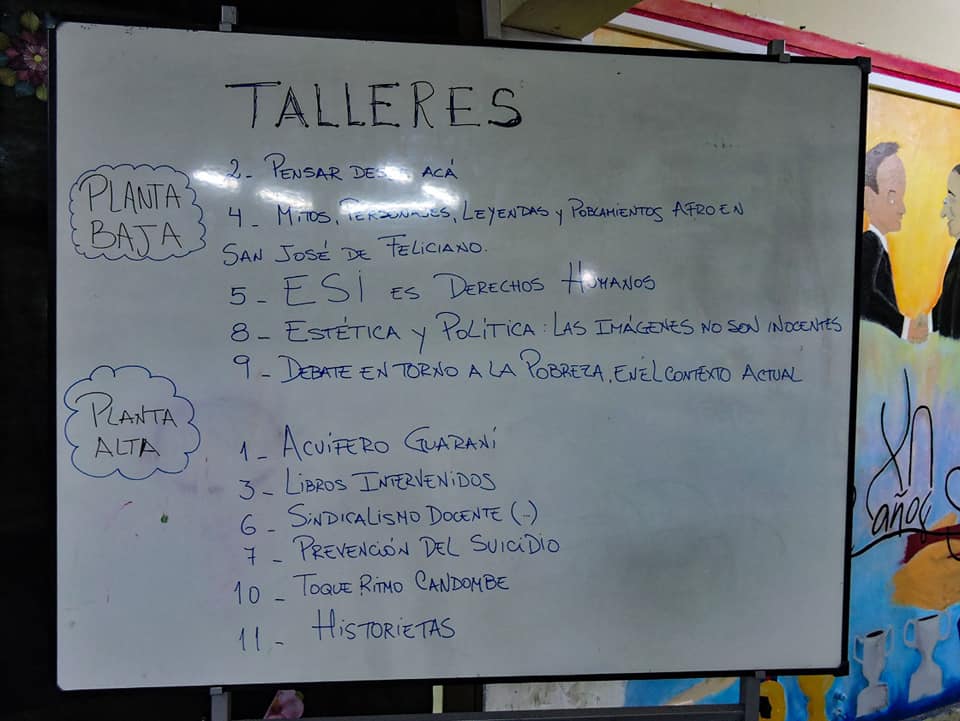 TALLERES
PLANTA
BAJA
2- PENSAR ACÁ
4- MITOS, PERSONAJES, LEYENDAS Y POBLAMIENTOS AFRO EN
SAN JOSÉ DE FELICIANO.
5- ESI ES DERECHOS HUMANOS
8- ESTÉTICA Y POLÍTICA: LAS IMÁGENES NO SON INOCENTES
9- DEBATE EN TORNO A LA POBREZA, EN EL CONTEXTO ACTUAL
PLANTA
ALTA
1- ACUÍFERO GUARANÍ
3- LIBROS INTERVENIDOS
6- SINDICALISMO DOCENTE (-)
7- PREVENCIÓN DEL SUICIDIO
10- TOQUE RITMO CANDOMBE
11- HISTORIETAS
años